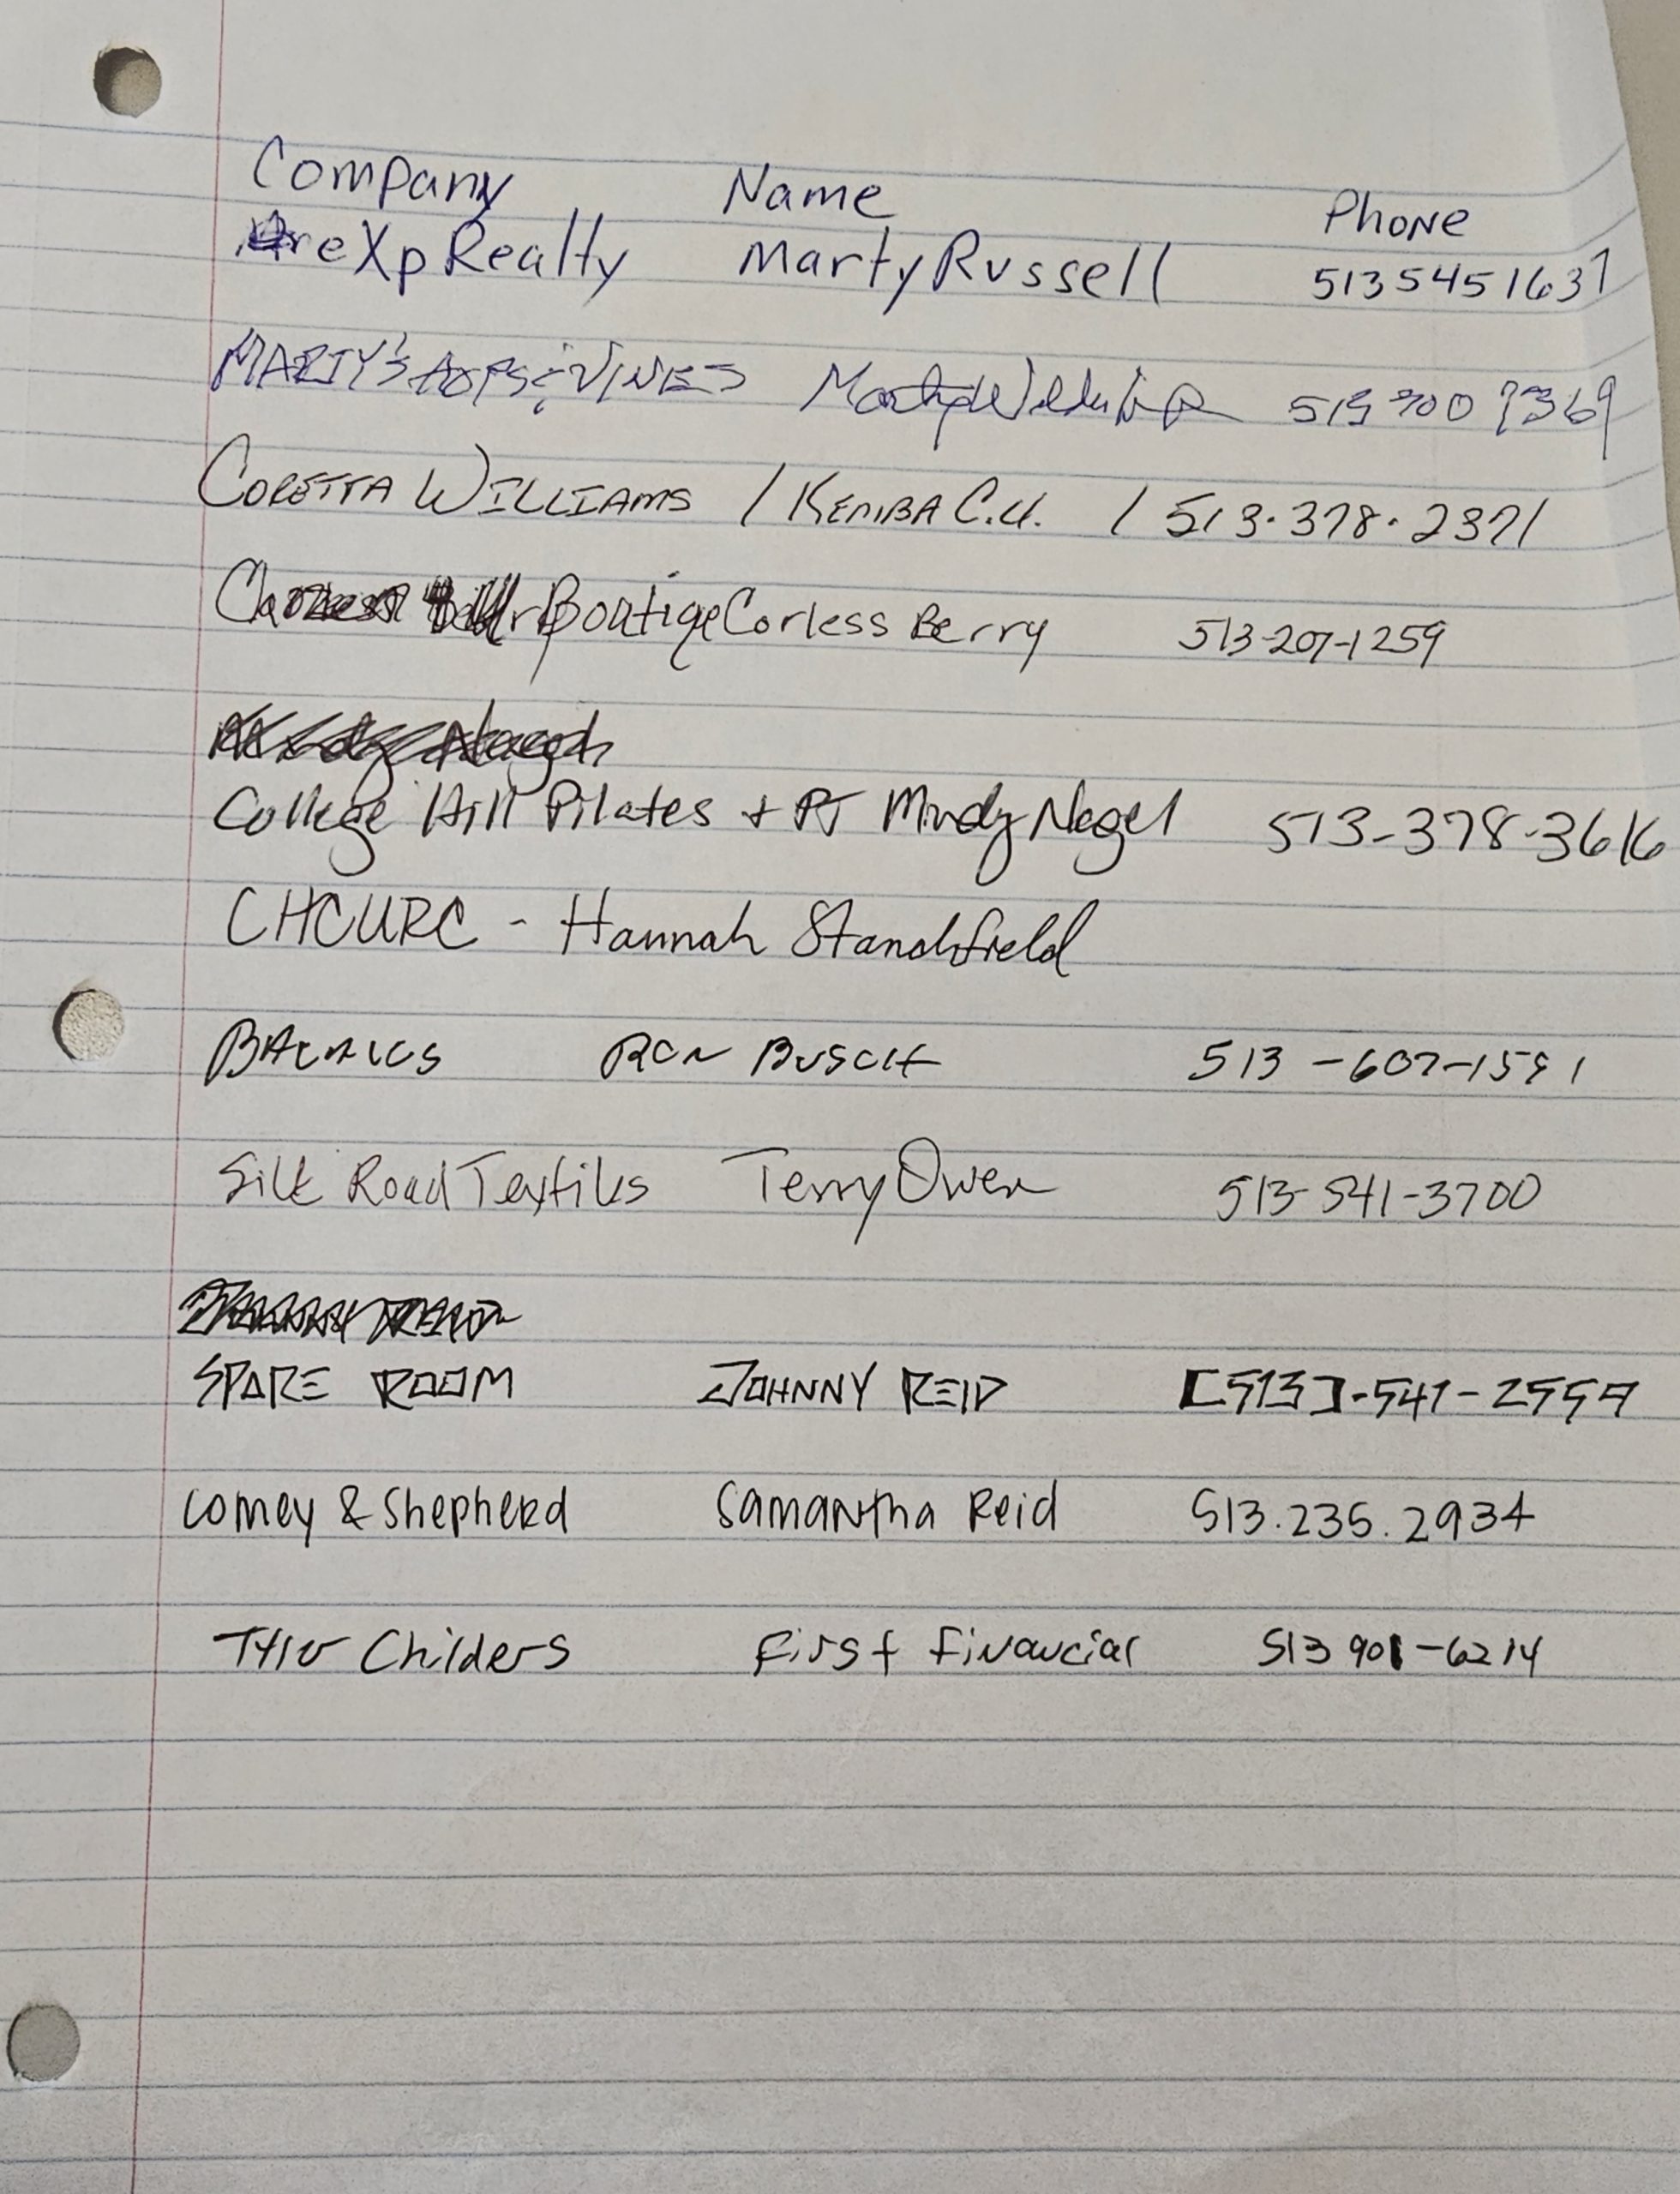 Company Name Phone
eXp Realty Marty Russell 513 545 1631
MARTY'S HOPS & VINES Marty
CORETTA WILLIAMS / KEMBA C.U. / 513.378.2371
Boutiqe Corless Berry 513-207-1259
College Hill Pilates + PT Mindy Nagel 513-378-3616
CHCURC - Hannah Standsfield
BACALLS RON BUSCH 513-607-1591
Silk Road Textiles Terry Owen 513-541-3700
SPARE ROOM JOHNNY REID [513]-541-2559
Comey & Shepherd Samantha Reid 513.235.2934
Tyler Childers First Financial 513 901-6214